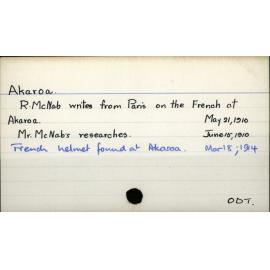 Akaroa.
R. McNab writes from Paris on the French at
Akaroa. May 21, 1910
Mr. McNab's researches. June 15, 1910
French helmet found at Akaroa. Mar 18, 1914
O D T.